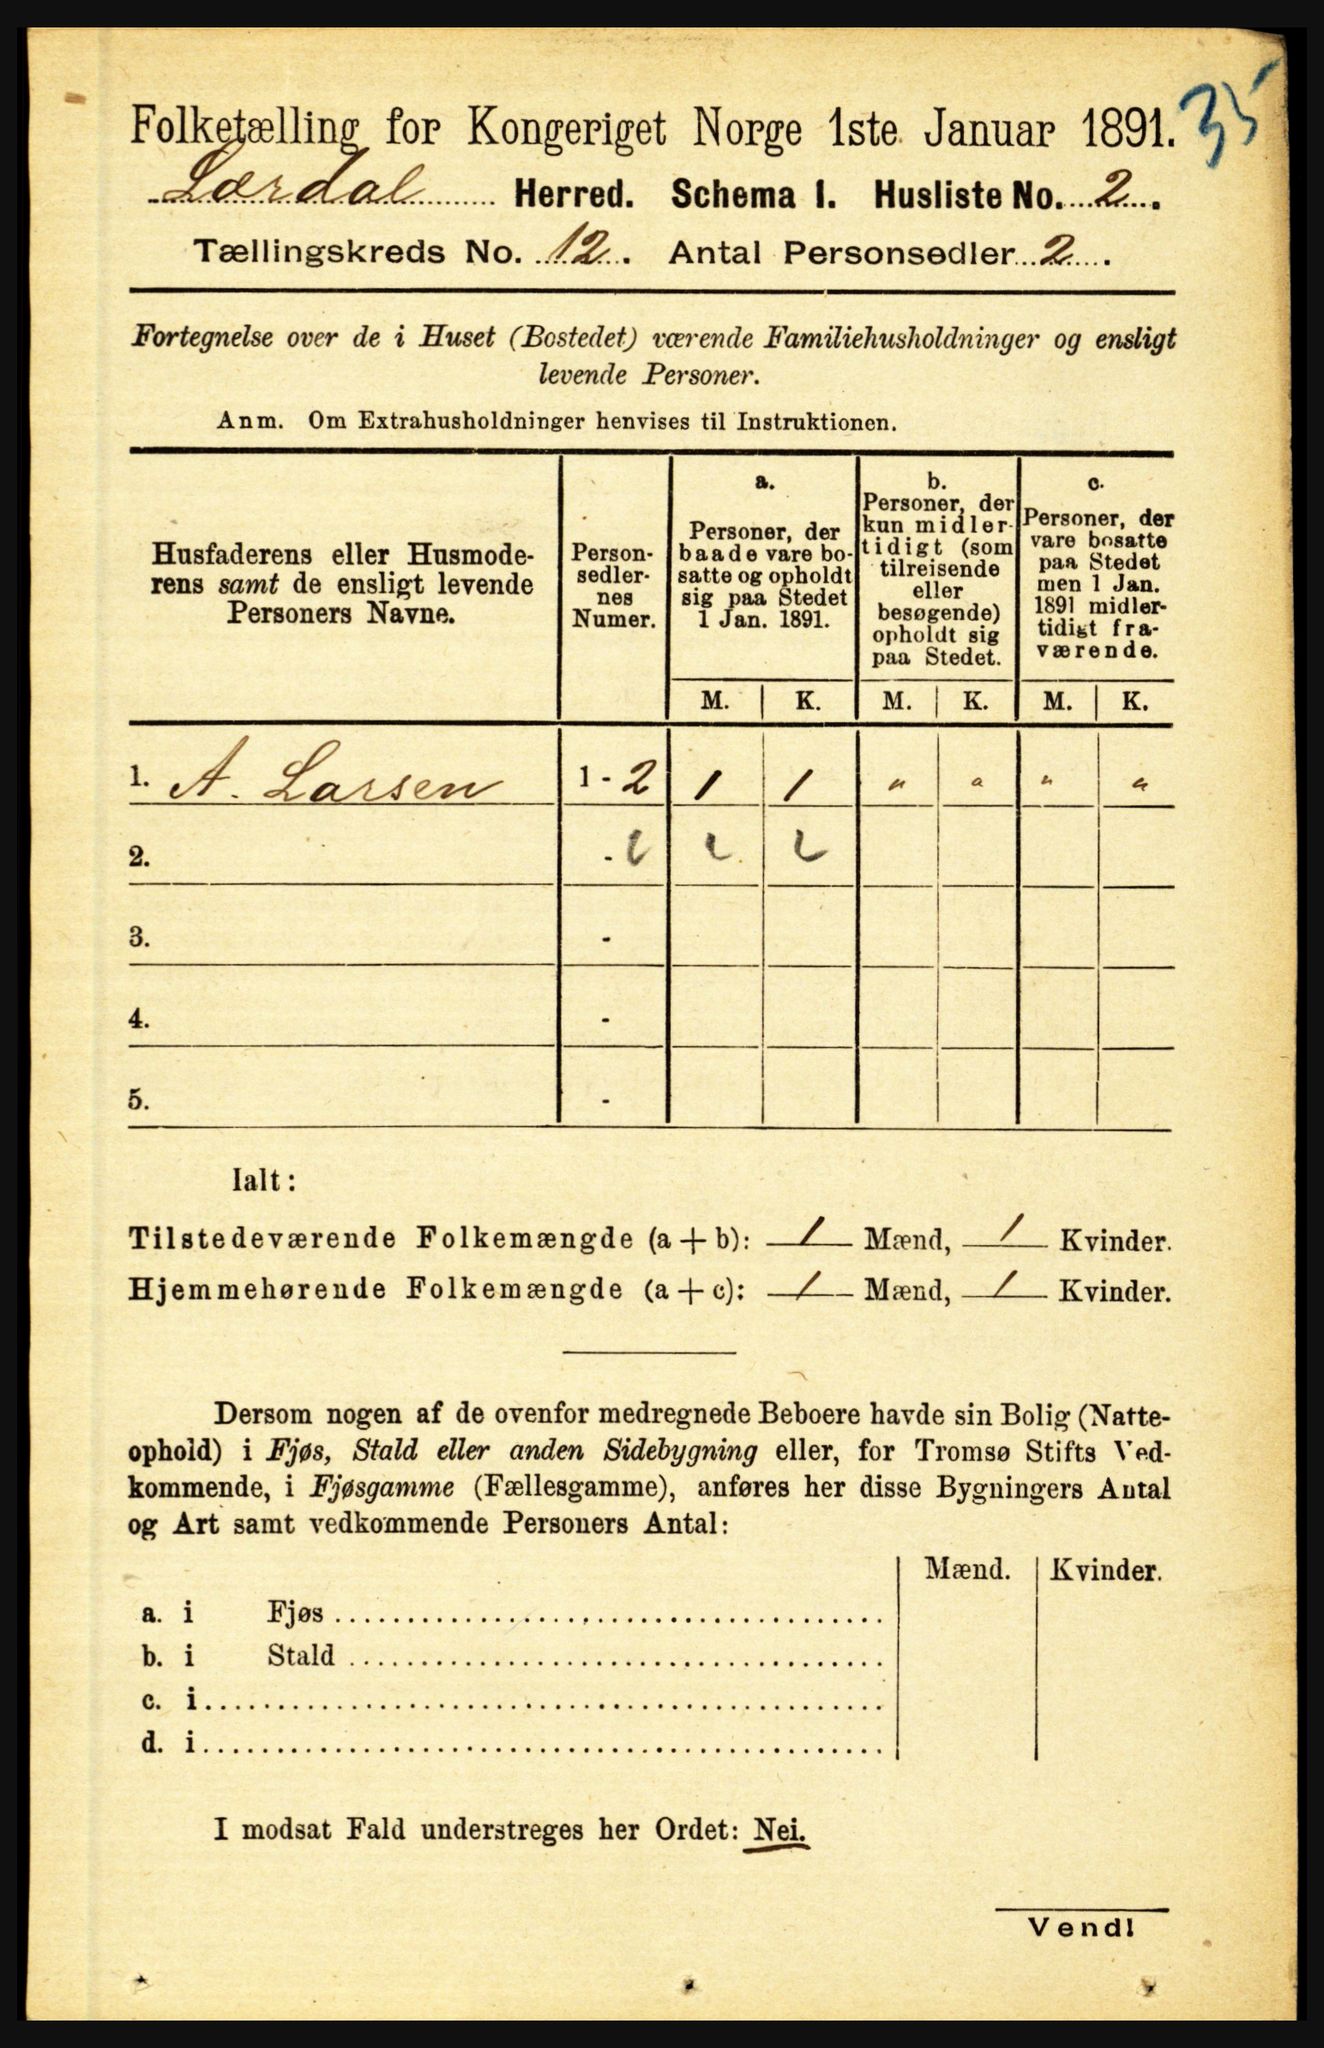 35
Folketælling for Kongeriget Norge 1ste Januar 1891.
Lærdal Herred. Schema I. Husliste No. 2.
Tællingskreds No. 12. Antal Personsedler 2.
Fortegnelse over de i Huset (Bostedet) værende Familiehusholdninger og ensligt
levende Personer.
Anm. Om Extrahusholdninger henvises til Instruktionen.
Husfaderens eller Husmode-
rens samt de ensligt levende
Personers Navne.
Person-
sedler-
nes
Numer.
a.
Personer, der
baade vare bo-
satte og opholdt
sig paa Stedet
1 Jan. 1891.
b.
Personer, der
kun midler-
tidigt (som
tilreisende
eller
besøgende)
opholdt sig
paa Stedet.
c.
Personer, der
vare bosatte
paa Stedet
men 1 Jan.
1891 midler-
tidigt fra-
værende.
M. K. M. K. M. K.
1. A. Larsen 1 - 2 1 1 " " " "
2. -
3. -
4. -
5. -
Ialt:
Tilstedeværende Folkemængde (a + b): 1 Mænd, 1 Kvinder.
Hjemmehørende Folkemængde (a + c): 1 Mænd, 1 Kvinder.
Dersom nogen af de ovenfor medregnede Beboere havde sin Bolig (Natte-
ophold) i Fjøs, Stald eller anden Sidebygning eller, for Tromsø Stifts Ved-
kommende, i Fjøsgamme (Fællesgamme), anføres her disse Bygningers Antal
og Art samt vedkommende Personers Antal:
Mænd. Kvinder.
a. i Fjøs
b. i Stald
c. i
d. i
I modsat Fald understreges her Ordet: Nei.
Vend!